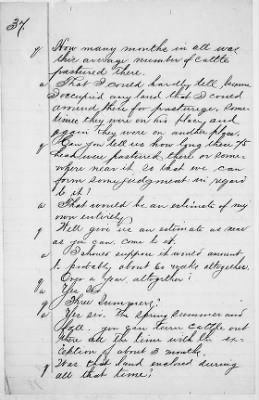 37.
q How many months in all was
this average number of cattle
pastured there.
a That I could hardly tell, because
I occupied any land that I could
around there for pasturage. Some-
times they were on his place, and
again they were on another place.
q Can you tell us how long these 70
head were pastured there or some-
where near it so that we can
form some judgment in regard
to it?
a That would be an estimate of my
own entirely.
q Well give us an estimate as near
as you can come to it.
a I should suppose it would amount
to probably about 60 weeks altogether.
q Over a year, altogether?
a Yes sir.
q Three summers?
a Yes sir. The spring summer and
fall. You can turn cattle out
there all the time with the ex-
ception of about 3 months.
q Was that land enclosed during
all that time?